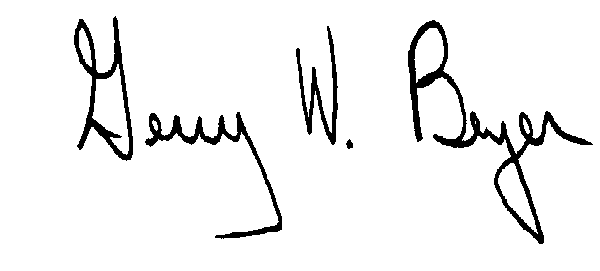 Gerry W. Beyer